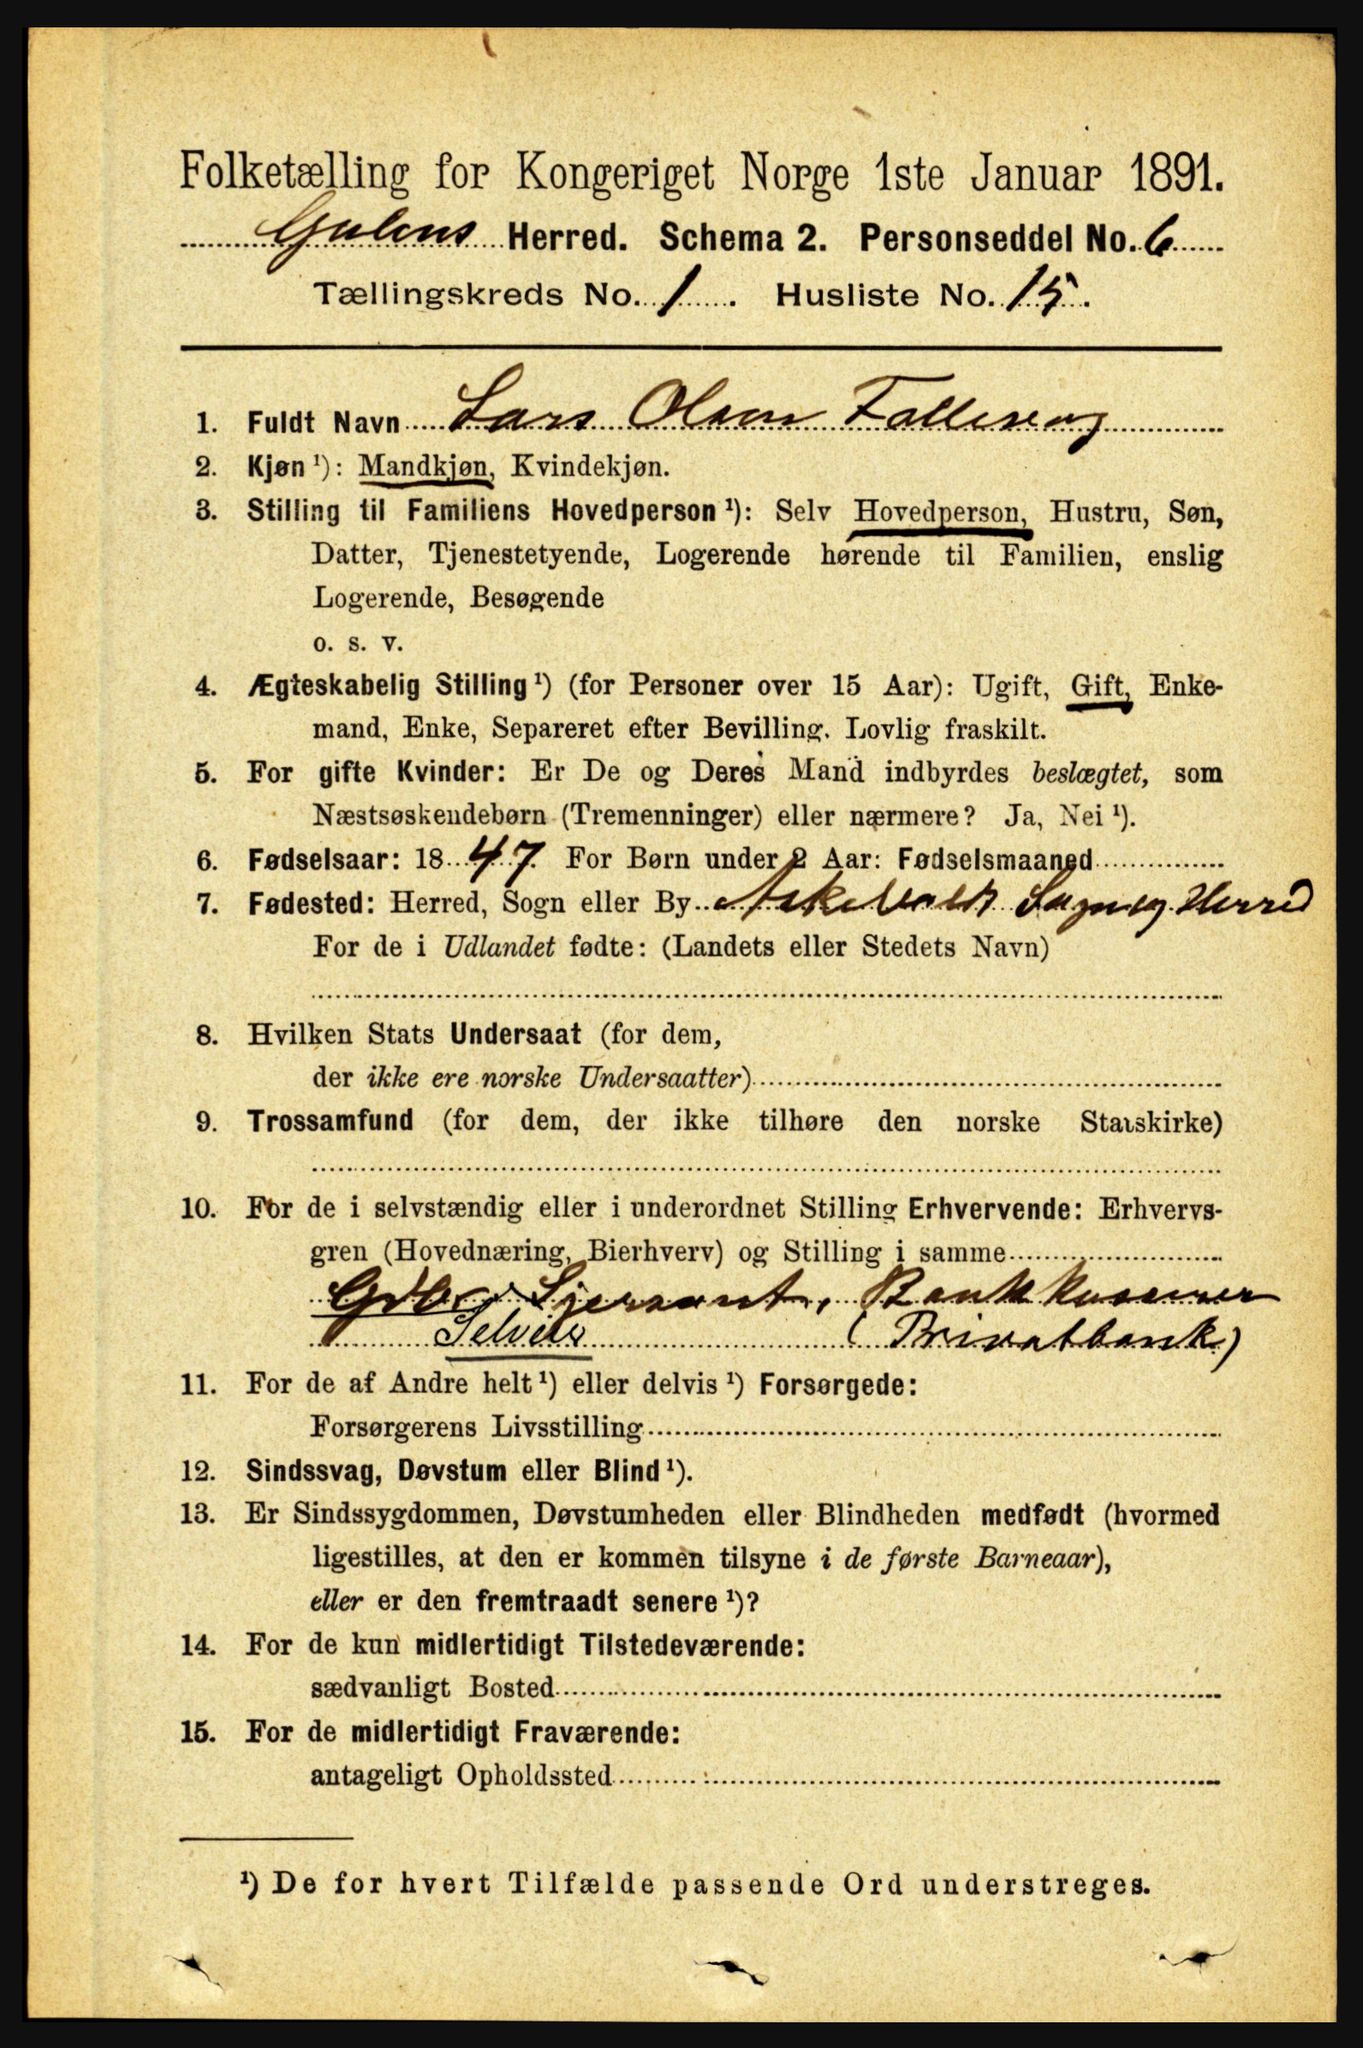 Folketælling for Kongeriget Norge 1ste Januar 1891.
Gulens Herred. Schema 2. Personseddel No. 6
Tællingskreds No. 1. Husliste No. 15.
1. Fuldt Navn Lars Olsen
2. Kjøn ¹): Mandkjøn, Kvindekjøn.
3. Stilling til Familiens Hovedperson ¹): Selv Hovedperson, Hustru, Søn,
Datter, Tjenestetyende, Logerende hørende til Familien, enslig
Logerende, Besøgende
o. s. v.
4. Ægteskabelig Stilling ¹) (for Personer over 15 Aar): Ugift, Gift, Enke-
mand, Enke, Separeret efter Bevilling. Lovlig fraskilt.
5. For gifte Kvinder: Er De og Deres Mand indbyrdes beslægtet, som
Næstsøskendebørn (Tremenninger) eller nærmere? Ja, Nei ¹).
6. Fødselsaar: 1847. For Børn under 2 Aar: Fødselsmaaned
7. Fødested: Herred, Sogn eller By Askevold Sogn og Herred
For de i Udlandet fødte: (Landets eller Stedets Navn)
8. Hvilken Stats Undersaat (for dem,
der ikke ere norske Undersaatter)
9. Trossamfund (for dem, der ikke tilhøre den norske Statskirke)
10. For de i selvstændig eller i underordnet Stilling Erhvervende: Erhvervs-
gren (Hovednæring, Bierhverv) og Stilling i samme
Gdbr. Sjersant, Bankkasserer
Selveier (Privatbank)
11. For de af Andre helt ¹) eller delvis ¹) Forsørgede:
Forsørgerens Livsstilling
12. Sindssvag, Døvstum eller Blind ¹).
13. Er Sindssygdommen, Døvstumheden eller Blindheden medfødt (hvormed
ligestilles, at den er kommen tilsyne i de første Barneaar),
eller er den fremtraadt senere ¹)?
14. For de kun midlertidigt Tilstedeværende:
sædvanligt Bosted
15. For de midlertidigt Fraværende:
antageligt Opholdssted
¹) De for hvert Tilfælde passende Ord understreges.